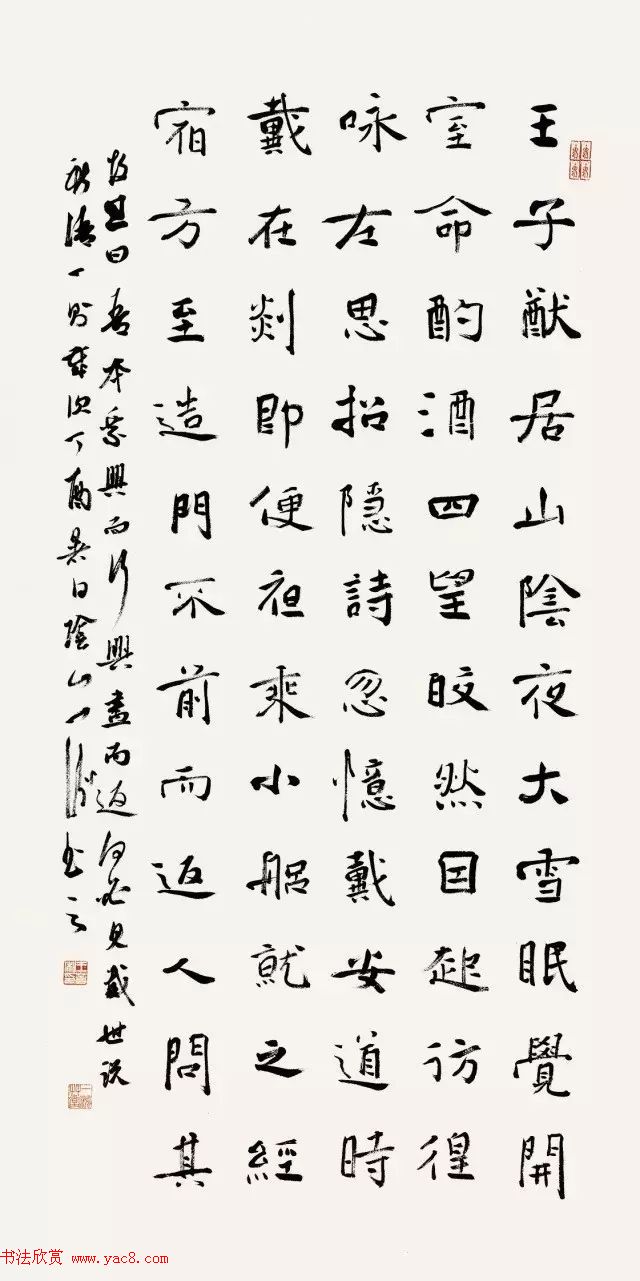 王子猷居山陰夜大雪眠覺開
室命酌酒四望皎然因起彷徨
咏左思招隱詩忽憶戴安道時
戴在剡即便夜乘小船就之經
宿方至造門不前而返人問其
故王曰吾本乘興而行興盡而返何必見戴世说
新語一則歲次丁酉暑日陰山
书法欣赏 www.yac8.com